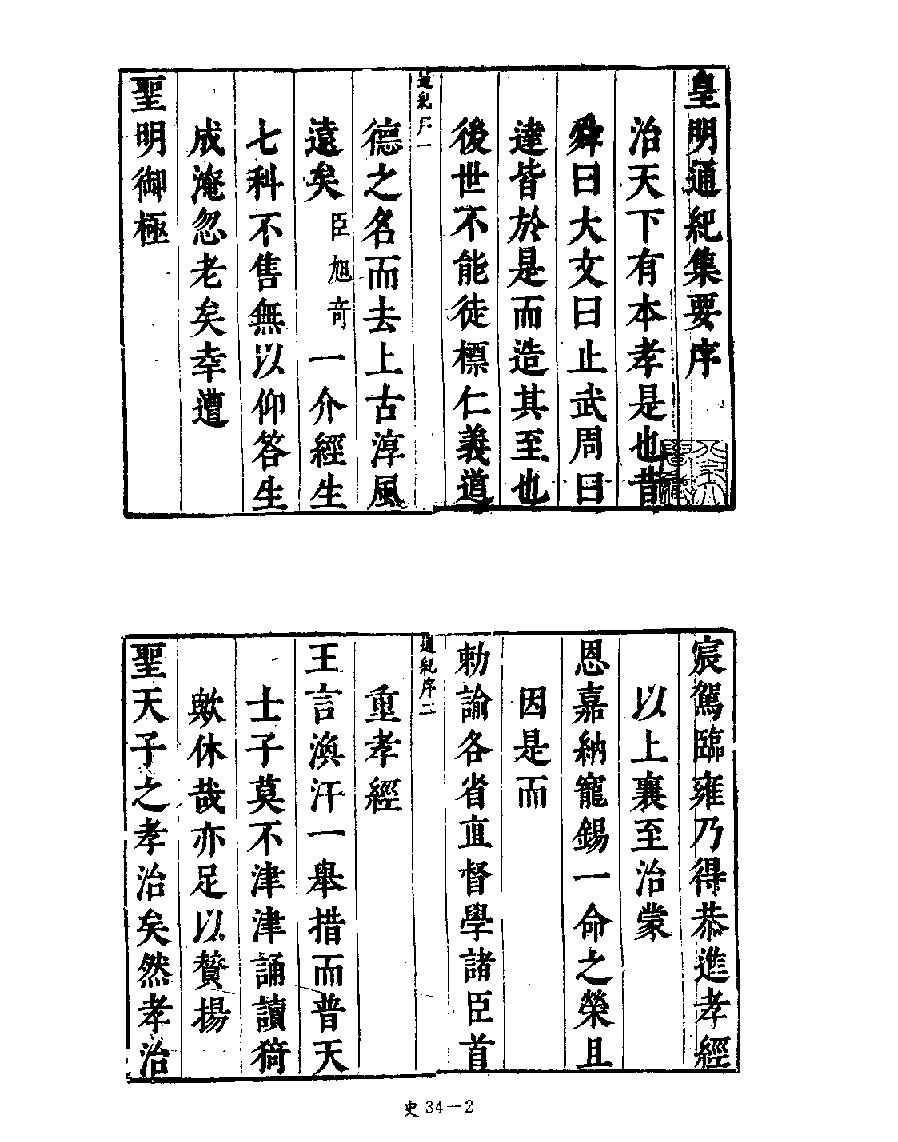 皇明通紀集要序
治天下有本孝是也昔
舜曰大文曰止武周曰
達皆於是而造其至也
後世不能徒標仁義道
通紀序一
德之名而去上古淳風
遠矣臣旭奇一介經生
七科不售無以仰答生
成淹忽老矣幸遭
聖明御極
宸駕臨雍乃得恭進孝經
以上襄至治蒙
恩嘉納寵錫一命之榮且
因是而
勅諭各省直督學諸臣首
通紀序二
重孝經
王言渙汗一舉措而普天
士子莫不津津誦讀猗
歟休哉亦足以贊揚
聖天子之孝治矣然孝治
史34—2